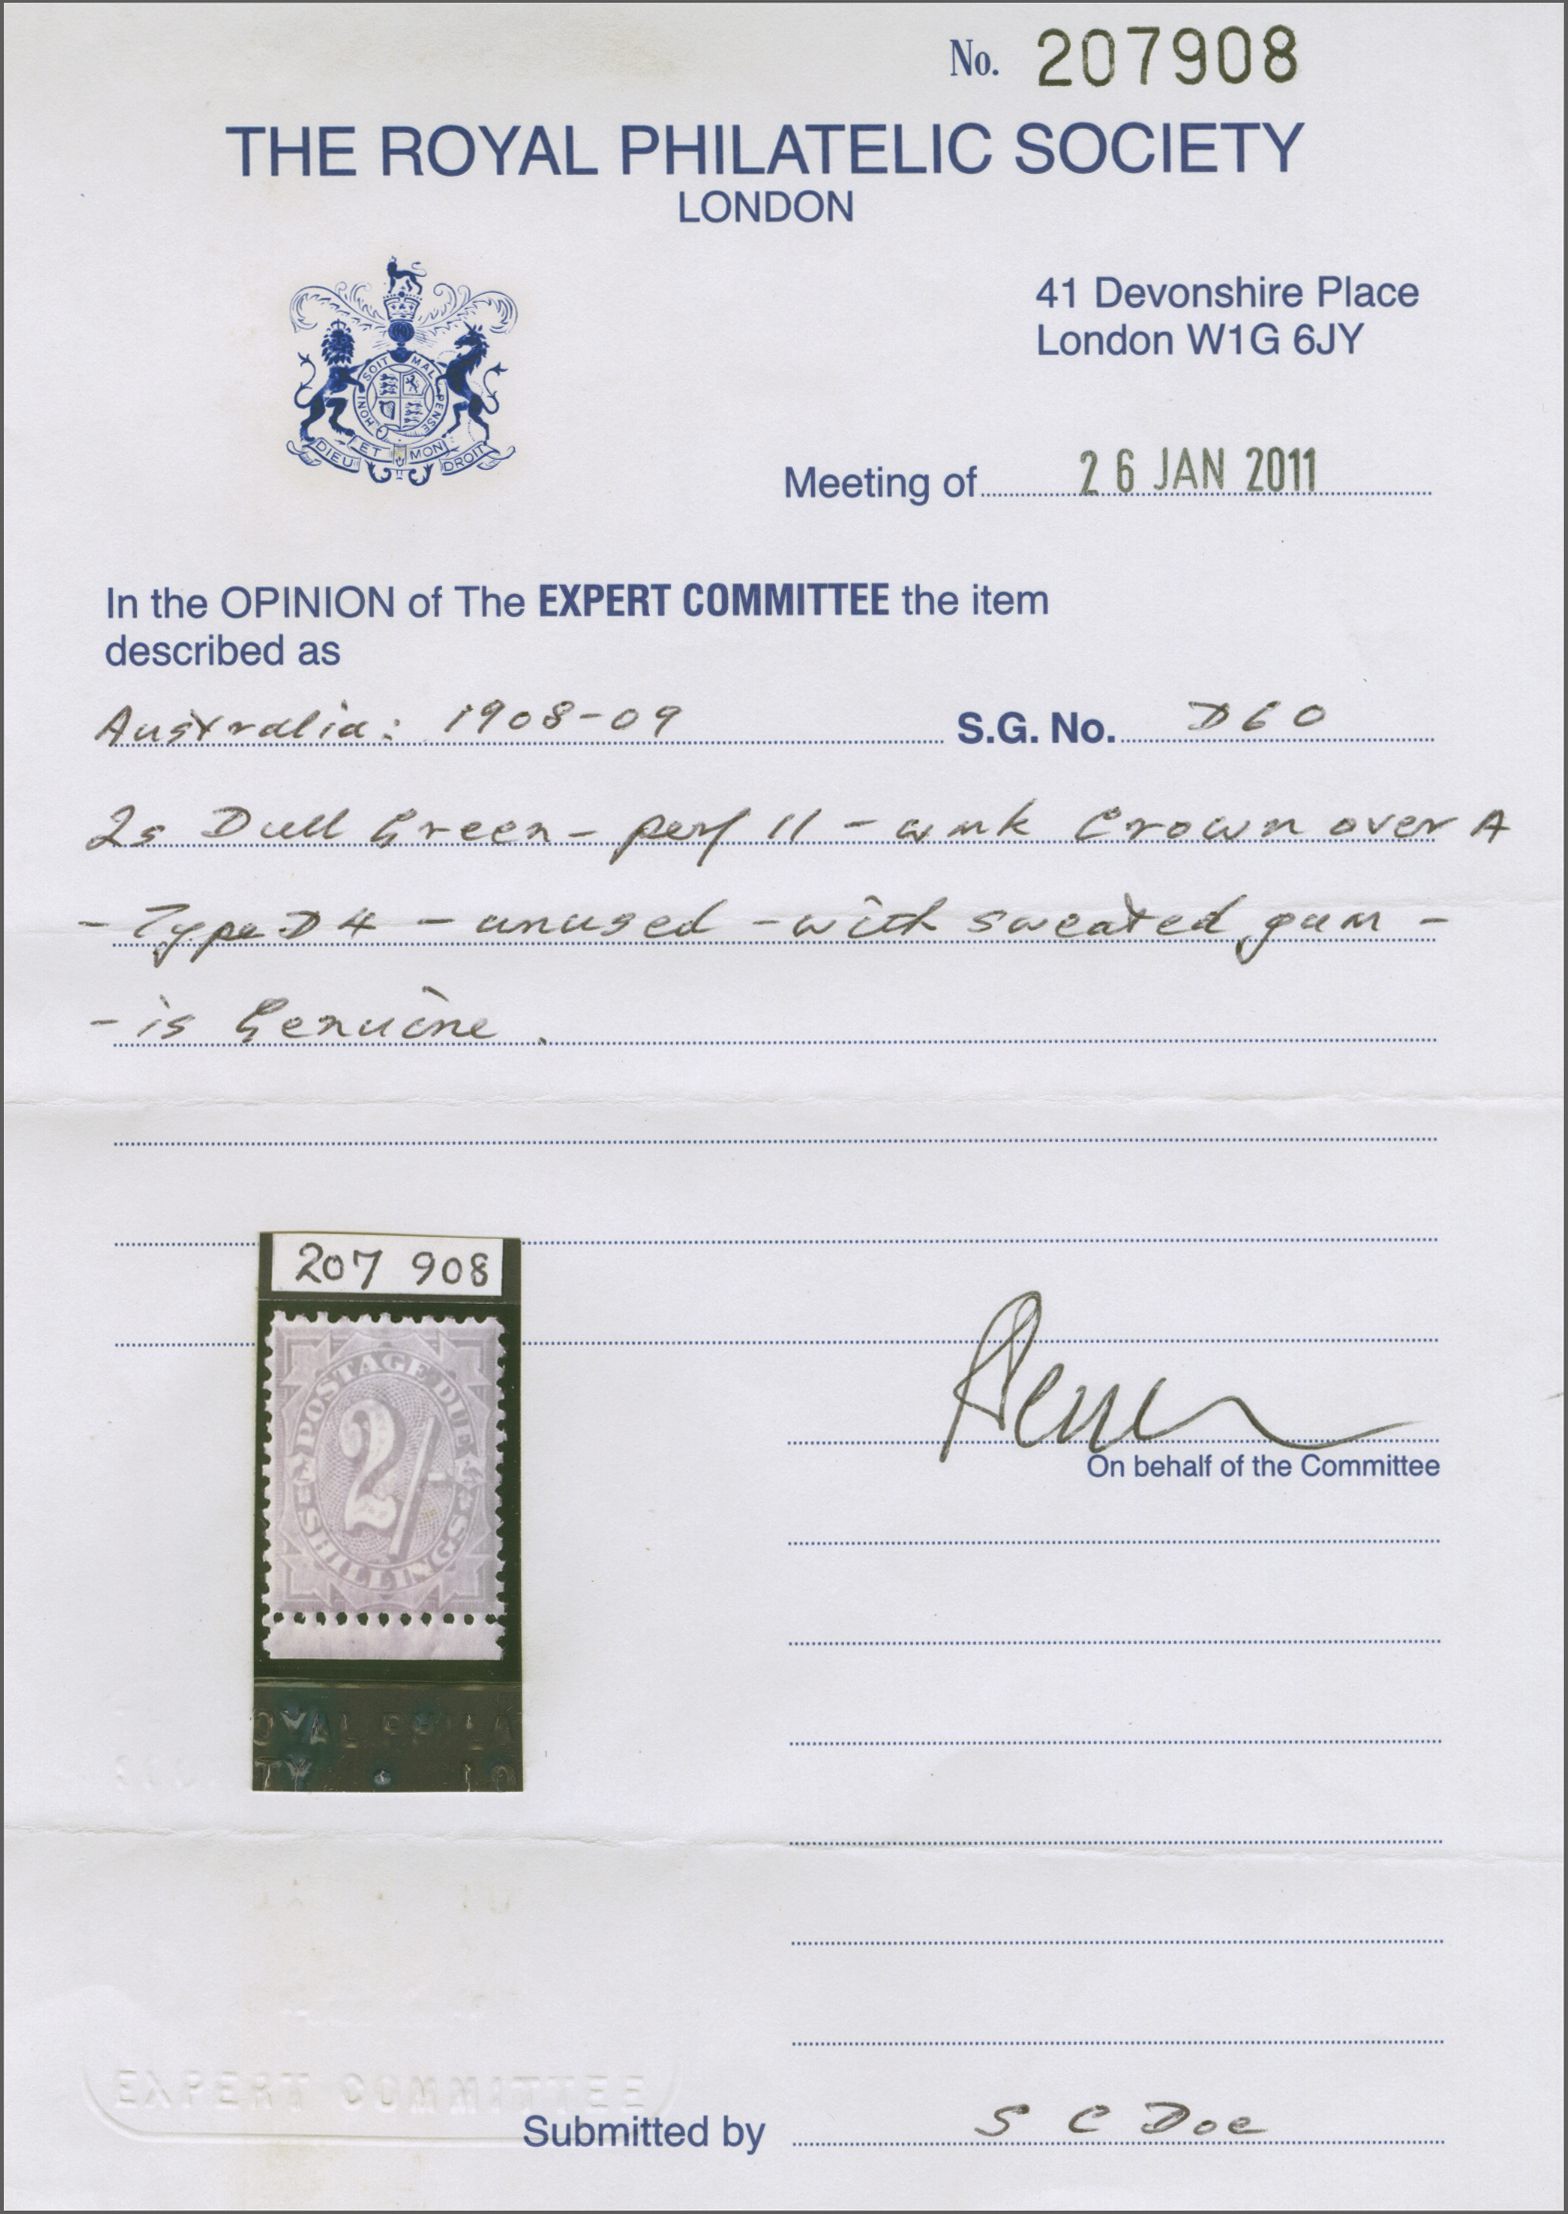 No. 207908
THE ROYAL PHILATELIC SOCIETY
LONDON
41 Devonshire Place
London W1G 6JY
HONI SOIT MAL PENSE
DIEU ET MON DROIT
Meeting of 26 JAN 2011
In the OPINION of The EXPERT COMMITTEE the item
described as
Australia: 1908-09 S.G. No. D60
2s Dull Green - perf 11 - wmk Crown over A
- Type D4 - unused - with sweated gum -
- is Genuine.
207 908
POSTAGE DUE
2/-
SHILLINGS
On behalf of the Committee
OYAL PHILA
TY LO
EXPERT COMMITTEE
Submitted by S C Doe